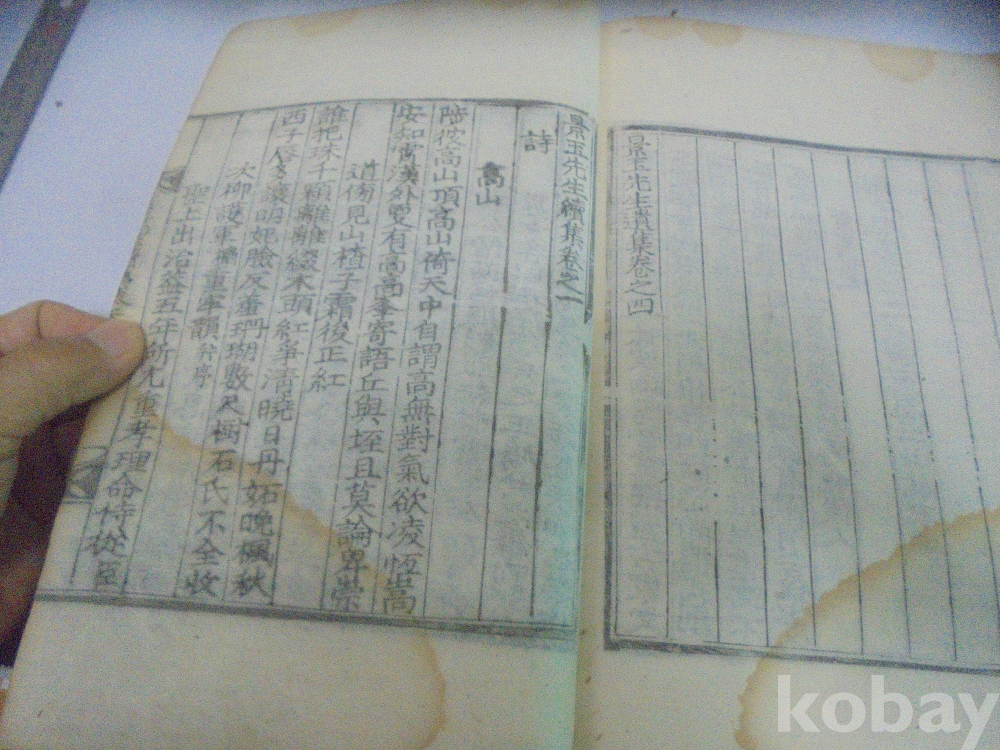 景玉先生遺集卷之四
景玉先生續集卷之一
詩
高山
陟彼高山頂高山倚天中自謂高無對氣欲凌恒嵩
安知霄漢外更有高高峯寄語丘與垤且莫論卑崇
道傍見山楂子霜後正紅
誰把珠千顆離離綴木頭紅爭清曉日丹妬晩楓秋
西子唇
明妃臉反羞珊瑚數尺樹石氏不全收
次柳護軍
重牢韻
聖上出治
五年
九重孝理命侍從臣
kobay